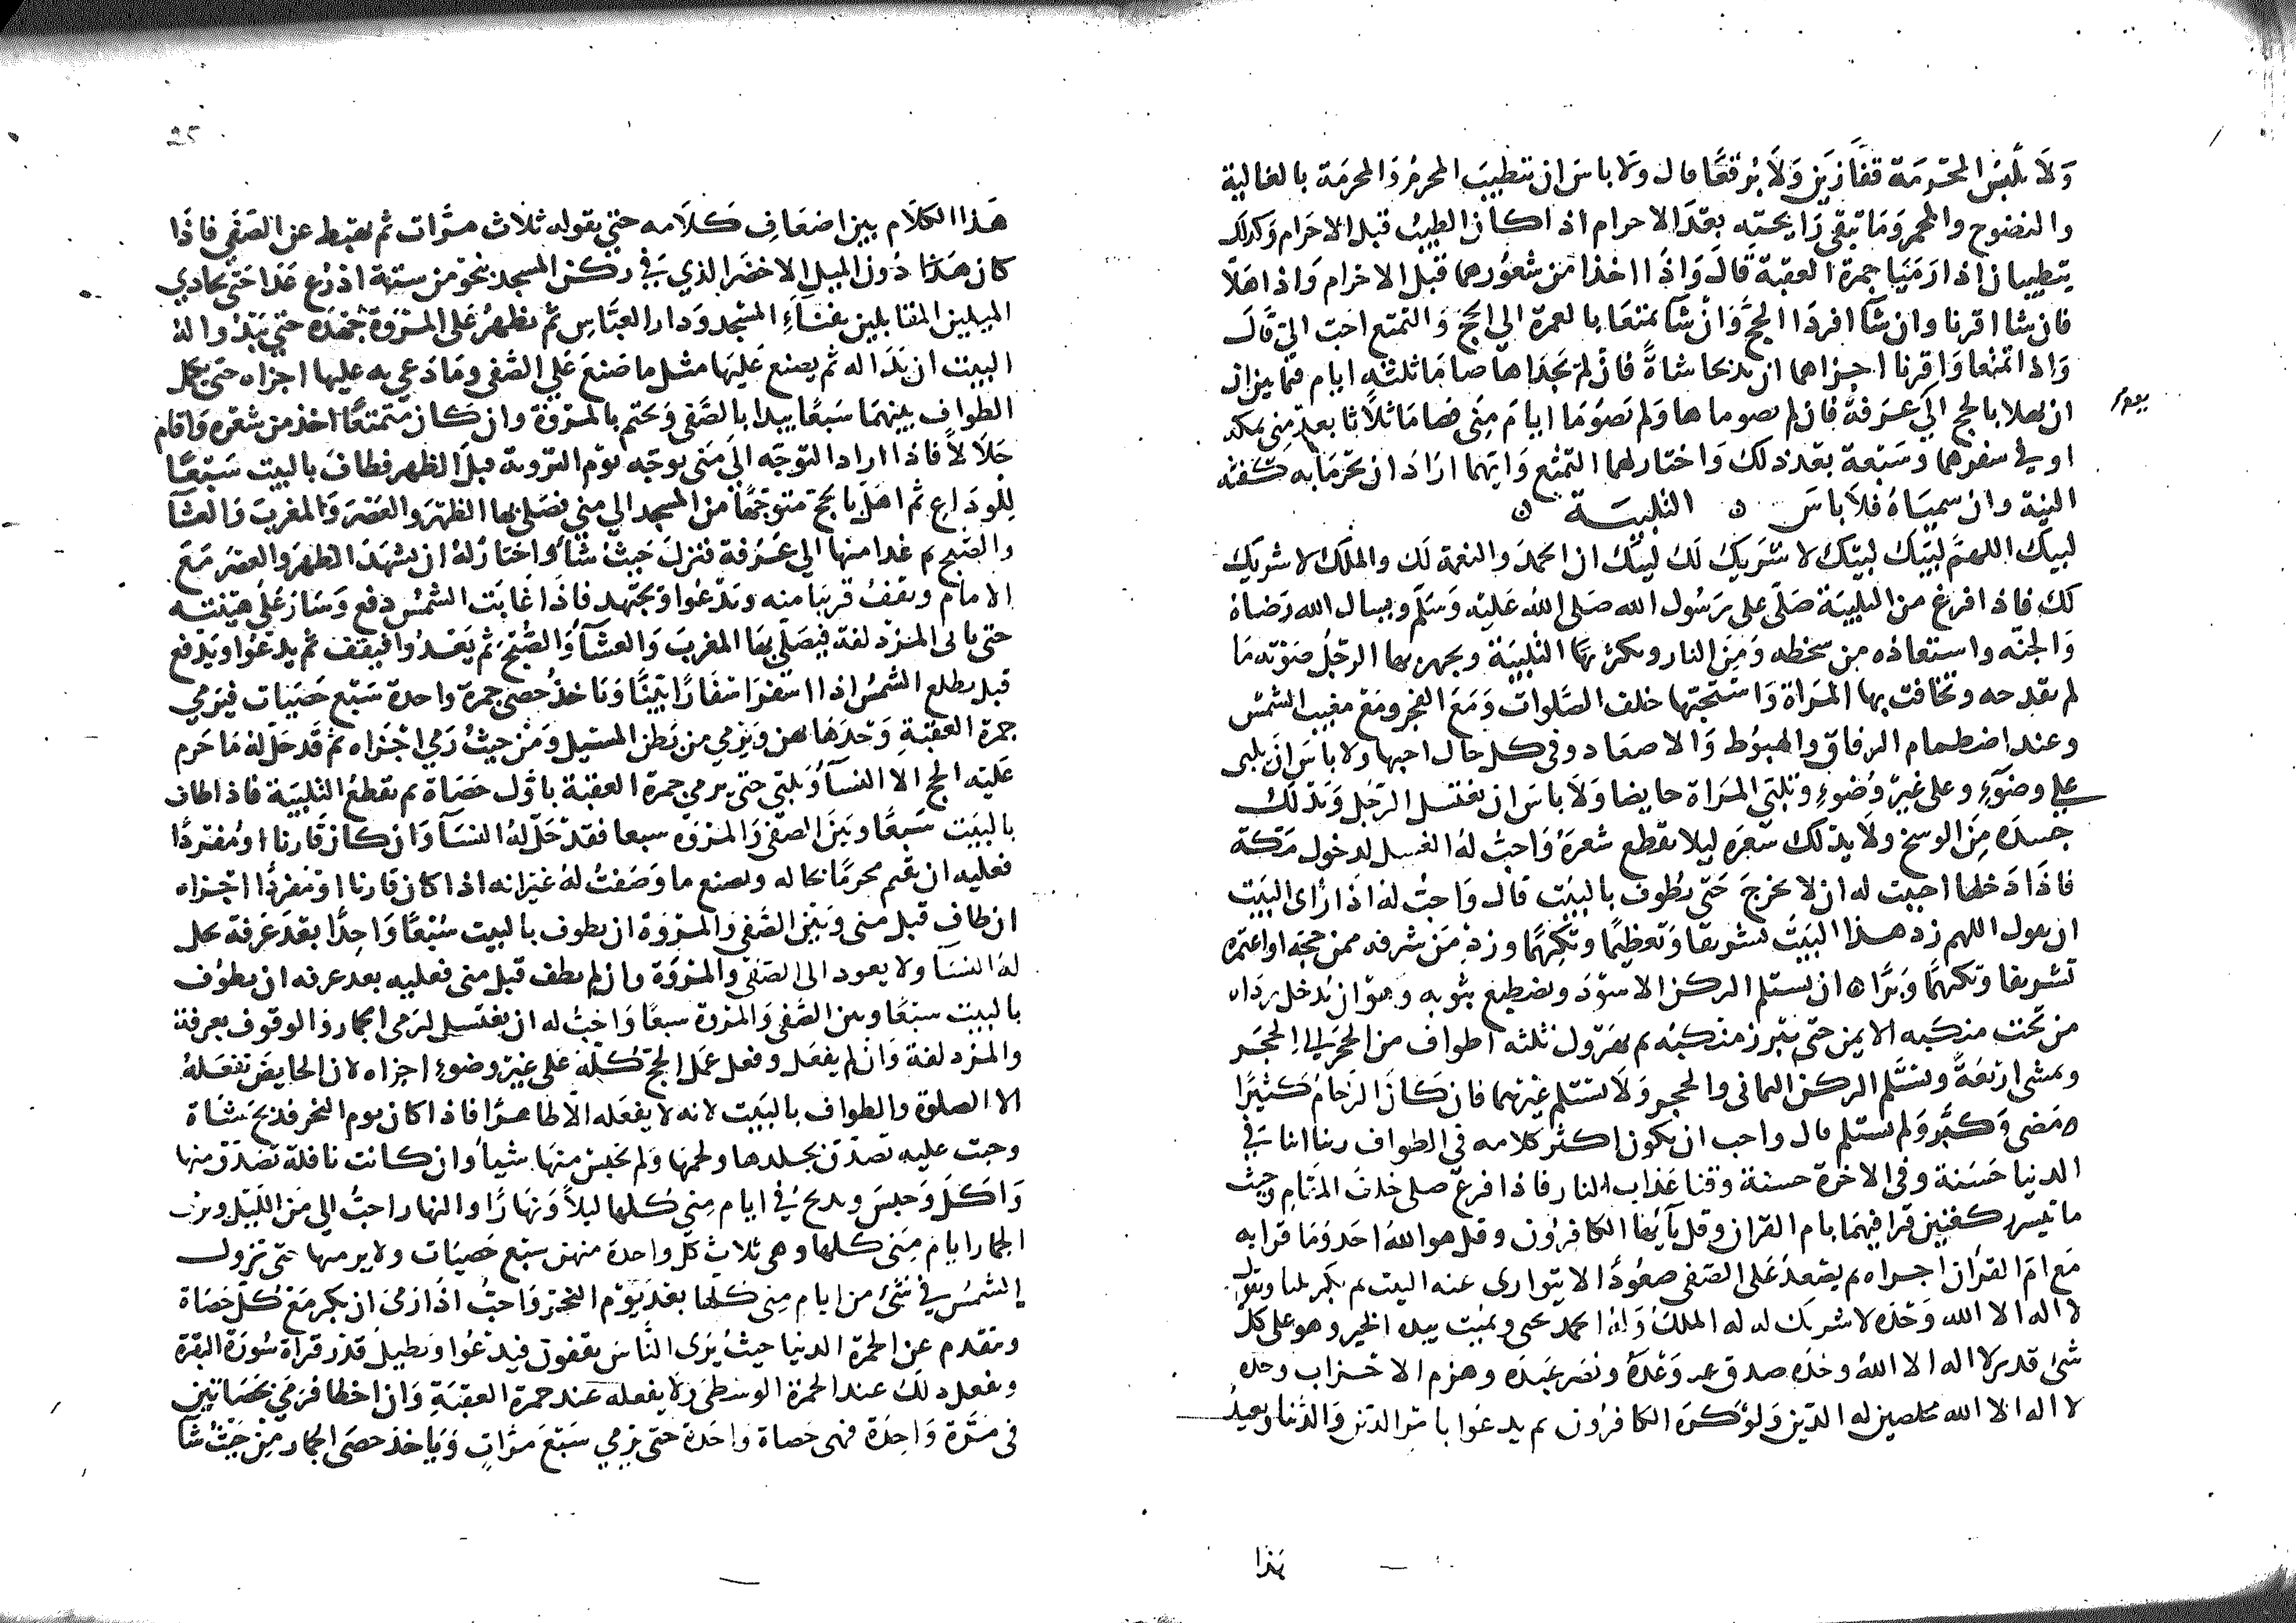 وَلَا تلْبَسُ المحْرمَة قفَّازَيْن وَلَا بُرقعًا قال ولا باس ان يتطيبَ المحرمُ والمحرمَة بالغالية
والنضوح والمجمر وَمَا تبقى رَايحته بعْدَ الاحرام اذا كان الطيبُ قبل الاحرام وَكذلك
يتطيبان اذا رَمَيَا جمرة العقبة قالَ وَاِذَا اخذا من شعورهما قبل الاحرام وَاذا اهَلّا
فان شاا قرنا وان شاآ افردَا الحجَّ وَاِنْ شاآ تمتعَا بالعمرة الي الحج وَالتمتع احبّ اليّ قالَ
وَاذا تمتعا وَاقرنا اجزاهما ان يذبحا شاةً فَاِنْ لم يَجدَاها صامَا ثلثة ايام فيمَا بين ان
ان يهلا بالحج الي يوم عرَفة فان لم يصوماها ولم يَصُومَا ايامَ مِنًى صامَا ثلاثا بعد مِنى بمكة
او في سفرهما وسَبْعة بعْدَ ذلكَ وَاختار لهما التمتّع وَايهما ارَادَ ان يحْرمَا به كفته
النية وان سميَاهُ فلَا باسَ ن التلبيَـة ن
لبيك اللهمَّ لبيّك لبيّك لا شَريكَ لك لبيك ان الحمدَ والنعمة لَك والملك لا شريك
لكَ فاذا فرغ من التلبيَة صَلّى على رَسُول الله صَلى الله عَليْه وَسَلم ويسال الله رضاهُ
وَالجنّه واستعَاذه من سخطه وَمِنَ النار ويكثر بهَا التلبيَة ويجهر بها الرجُل صَوْته مَا
لم يقدحه وتخافت بها المرَاة وَاستحبّها خلف الصَّلوات وَمعَ الفجر ومعَ مغيب الشمْس
وعند اضطمام الرفاق والهبُوط وَالاصعَاد وفي كل حال احبها ولا باسَ انْ يلبى
على وضُوَءٍ وعلى غيْر وُضُوءٍ وتلبّى المَرَاة حايضا وَلَا باسَ ان يغتسل الرّجُل وَيَدْلك
جسدَه مِنَ الوسخ وَلَا يدلك شعَرَه ليلا يقطع شعرَهُ وَاحبُ لهُ الغسل لدخول مَكّة
فاذَا دَخلها احببت له ان لا يخرجَ حَتى يطُوف بالبيْت قالَ وَاحبُ لهُ اذَا رَاى البَيْت
ان يقول اللهم زد هـذا البَيْتَ تشريفا وَتعظيمًا وتكْرِيمًا وزدْ مَنْ شرفه ممن حجه او اعتمره
تشريفا وتكريمًا وَبِرًّا ن ان يستلم الركن الاسوَد ويضطبع بثوبه وَهوَ ان يُدخل ردَاه
من تحت منكبه الايمن حتى يبرز منكبُه ثم يهرْول ثلثه اطواف من الحجَر الى الحجَـر
ويمشى اربَعةً ويسْتلم الركن اليمانى والحجـر وَلَا يستلم غيْرَهما فان كانَ الزحَامُ كَثيرًا
مَضى وَكبَّر وَلم يستلم قال واحب ان يكون اكثر كلامه في الطواف ربنا اتنا في
الدنيا حَسَنة وفى الاخرة حسنة وقنا عَذاب النار فاذا فرغ صلى خلفَ المقام وَحيث
ما تيسر ركعتين قرَا فيهمَا بام القران وقل يآيُّها الكافرُون وقل هو اللهُ احَد وَمَا قرا به
مَع امّ القرْان اجزاه ثم يصْعدُ عَلى الصّفى صعُودًا لا يتوارى عنه البيت ثم يكبر ثلثا ويقول
لا اله الا الله وَحْدَه لا شريك له له الملكُ وَلهُ الحمد يحيى ويميت بيده الخير وهو على كل
شئ قدير لا اله الا اللهُ وحدَه صدق وَعْدَهُ ونصَر عَبدَه وهزم الاحْـزاب وحده
لا اله الا الله مخلصين له الدّين وَلوْ كرهَ الكافرُون ثم يدعُوا بامْر الدّين وَالدّنيا وَيعيدُ
هذا
25
هَـذا الكلَام بين اضعَافِ كَلامه حتى يقوله ثلاث مرَّات ثم يهبط عن الصَّفي فاذَا
كان هَذا دُون الميل الاخضَر الذي في ركن المسجد بنحوٍ من ستة اذرُع عَدَا حَتى يحاذي
الميلين المقابلين بفنَاءَ المسْجد وَدار العبَّاسِ ثم يظهرُ عَلى المرْوَة جُهْدَه حتى يَبْدُوا لهُ
البيت ان بدَا له ثم يصنع عَليهَا مثل ما صَنعَ عَلي الصّفى وَمَا دَعى به عليها اجزاه حَتى يكمل
الطواف بينهمَا سَبعًا يبدا بالصَّفى وَيختم بالمرْوَة وان كان متمتعًا اخذ من شعْره وَاقام
حَلَالًا فاذا اراد التوجّه الي مِنى توجّه يوْم الترويه قبل الظهر فطافَ بالبيت سَبْعًا
لِلوَدَاعِ ثم اهَلّ بالحجّ متوَجّهًا من المسجد الي مني فصَلى بها الظهرَ والعَصْرَ وَالمغربَ وَالعشَآ
والصّبح ثم غدا منها الي عَرَفة فنزل حَيثُ شآ وَاختارُ لهُ ان يشهَدَ الظهر والعصرَ مَعَ
الامام ويقفُ قريبًا منه ويدْعُوا ويجتهد فاذَا غابَت الشمْسُ دفع وَسَارَ عَلَى هيْنته
حتى ياتى المزْدلفة فيصَلى بهَا المغربَ وَالعشآ وَالصّبْح ثم يَغْدُوا فيقف ثم يدعُوا وَيدفع
قبل تطلع الشمْسُ اذا اسفرَ اسْفارًا بَيّنًا وَيَاخذ حصى جمرَة واحدة سَبْع حَصَيَات فيَرمي
جمرة العقبَةِ وَحْدَهَا بهن وَيَرمي من بَطن المسيل وَمنْ حيثُ رَمي اجْزاه ثم قد حَلّ لهُ مَا حَرم
عَليْه الحج الا النسآ وَيلبّي حتى يرمي جمرة العقبة باوَّل حَصَاة ثم يقطعُ التلبيَة فاذا طاف
بالبيت سَبعًا وبَيْنَ الصَّفى وَالمرْوَه سبعا فقدْ حَلّ لهُ النسَآ وَان كان قَارنا اومُفردًا
فعليه ان يقيم محرمًا بحاله ويصنع ما وَصَفتُ لهُ غيْرَ انه اذا كان قارنا اوْ مفردًا اجْزاه
ان طاف قبل منى وَبَيْن الصَّفى وَالمرْوَة ان يطوف بالبيت سَبْعًا وَاحِدًا بعْدَ عَرفة يحل
لهُ النسَآ ولا يعود الى الصّفَى والمرْوَة وان لم يطف قبل منى فعليه بعد عرفه ان يطوُف
بالبيْت سَبْعًا وبين الصَّفى وَالمرْوَة سَبعًا وَاحبُ له ان يغتسل لرَمى الجمار وَالوقوف بعرفة
والمزدلفة وَانْ لم يفعَل وفعل عمَل الحجّ كلّه عَلى غيْر وضوء اجزاه لان الحايضَ تفعَلهُ
الا الصلوة والطواف بالبَيت لانه لا يفعَله الّا طاهـرًا فاذا كان يوم النحر فذبحَ شَاة
وجبت عليه تصَدّق بجلدها ولحمها وَلم يحْبسْ منهَا شيأ وَان كانت نافلة تصَدّق منها
وَاكلَ وَحبسَ ويذبحُ في ايام مِنىً كلها ليلًا وَنهَارًا والنهار احبّ الي مَن الليْل ويرمي
الجمار ايام مِنى كلها وهى ثلاث كل واحدة منهن سبْع حَصيَات ولا يرميها حتى تزول
الشمْسُ في شئ من ايام مِنى كلّها بعْدَ يَوْم النحْر وَاحبُّ اذَا رَمىَ ان يكبر مَعَ كلّ حَصَاة
ويتقدم عن الجمرة الدنيا حيثُ يَرَى النَّاسَ يقفون فيدْعُوا ويطيلُ قدْرَ قراة سُورَة البقرة
ويفعل ذلكَ عند الجمرة الوسْطى وَلا يفعله عند جمرة العقبَةِ وَان اخطا فرمى بحَصَاتين
فى مرَّة وَاحِدَة فهى حَصاة وَاحَدَة حتى يرْمي سَبْعَ مرَّاتٍ وَيَاخذ حصَى الجمار مِنْ حَيْثُ شَآ